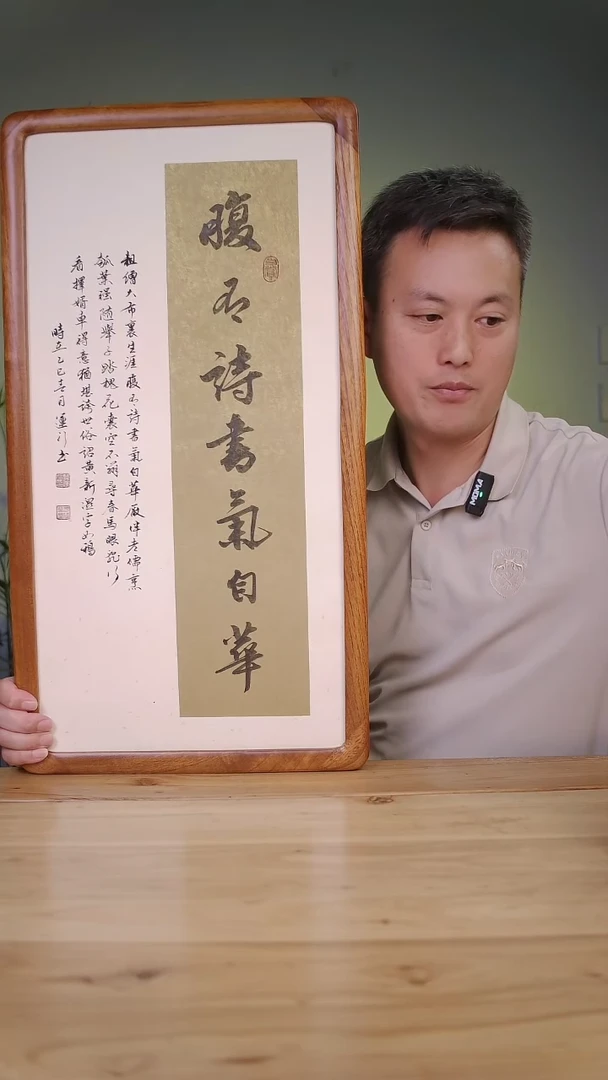 腹有詩書氣自華
粗繒大布裹生涯腹有詩書氣自華厭伴老儒烹
瓠葉強隨舉子踏槐花囊空不辦尋春馬眼亂行
看擇婿車得意猶堪誇世俗詔黃新濕字如鴉
時在乙巳書
MOMA